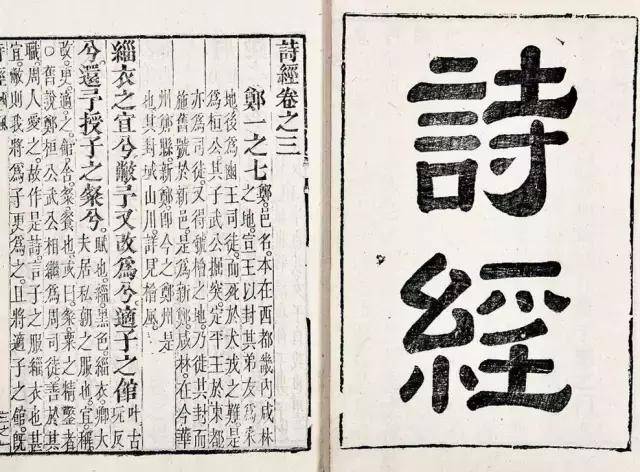 詩經
詩經卷之三
鄭一之七 鄭邑名。本在西都畿內咸林
之地。宣王以封其弟友為采
地後為幽王司徒。而死於犬戎之難。是
為桓公。其子武公掘突。定平王於東都
亦為司徒。又得虢檜之地。乃徙其封。而
施舊號於新邑。是為新鄭。咸林。在今華
州鄭縣。新鄭。即今之鄭州。是
也。其封域山川。詳見檜風。
緇衣之宜兮。敝予又改為兮。適子之館 叶古玩反
兮。還予授子之粲兮。 賦也。緇。黑色。緇衣。卿大
夫居私朝之服也。宜。稱
改。更。適。之。館。舍。粲。餐也。或曰。粲。粟之精鑿者
○舊說鄭桓公武公相繼為周司徒。善於其
職。周人愛之。故作是詩。言子之服緇衣也甚
宜。敝則我將為子更為之。且將適子之館。既